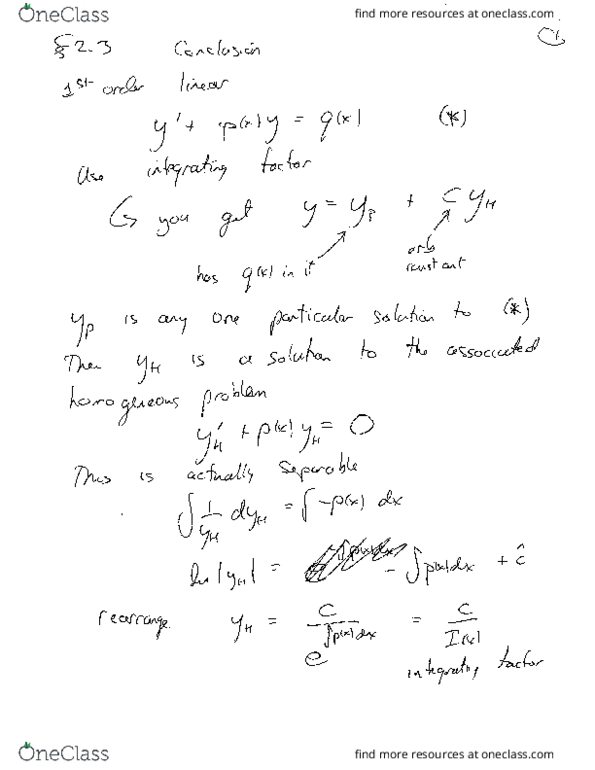 OneClass
find more resources at oneclass.com
§ 2.3 Conclusion
1st order linear
y' + p(x)y = q(x) (*)
Use integrating factor
↳ you get y = y_P + C y_H
has q(x) in it
arb constant
y_P is any one particular solution to (*)
Then y_H is a solution to the associated
homogeneous problem
y_H' + p(x) y_H = 0
This is actually separable
∫ 1/y_H dy_H = ∫ -p(x) dx
ln |y_H| = - ∫ p(x) dx + ĉ
rearrange y_H = C / e^{∫p(x)dx} = C / I(x)
integrating factor
OneClass
find more resources at oneclass.com